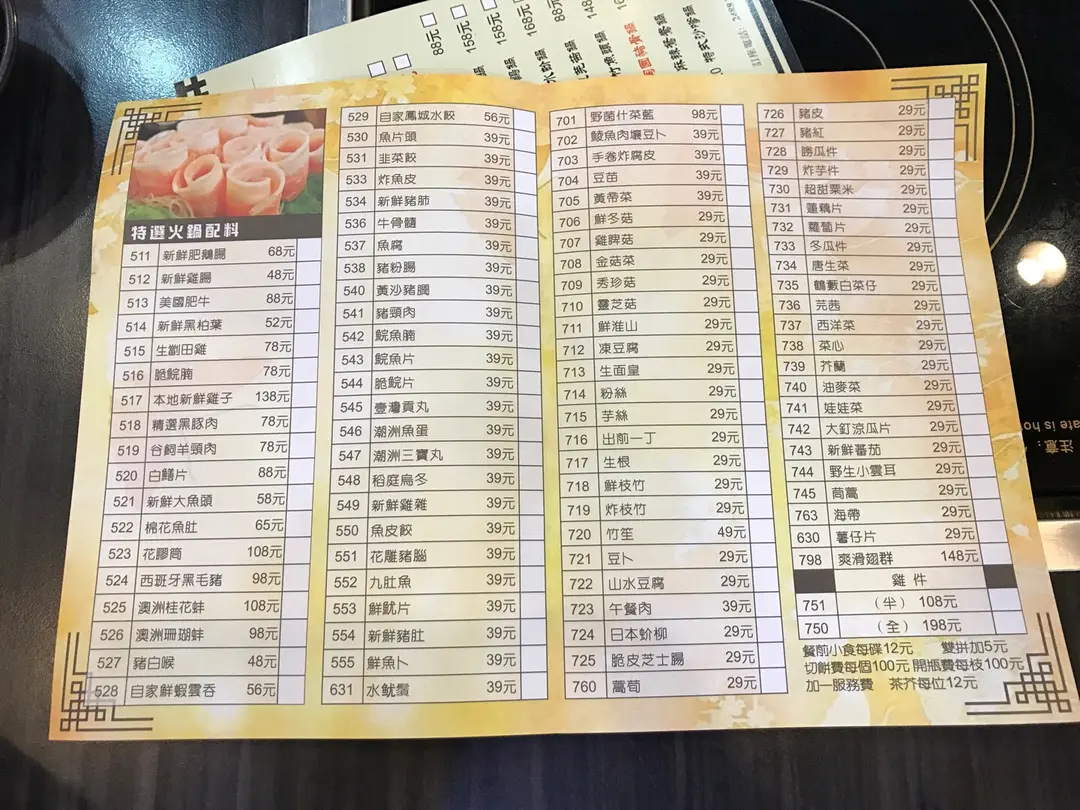 特選火鍋配料
511 新鮮肥鵝腸 68元
512 新鮮雞腸 48元
513 美國肥牛 88元
514 新鮮黑柏葉 52元
515 生劏田雞 78元
516 脆鯇腩 78元
517 本地新鮮雞子 138元
518 精選黑豚肉 78元
519 谷飼羊頸肉 78元
520 白鱔片 88元
521 新鮮大魚頭 58元
522 棉花魚肚 65元
523 花膠筒 108元
524 西班牙黑毛豬 98元
525 澳洲桂花蚌 108元
526 澳洲珊瑚蚌 98元
527 豬白喉 48元
528 自家鮮蝦雲吞 56元
529 自家鳳城水餃 56元
530 魚片頭 39元
531 韭菜餃 39元
533 炸魚皮 39元
534 新鮮豬肺 39元
536 牛骨髓 39元
537 魚腐 39元
538 豬粉腸 39元
540 黃沙豬膶 39元
541 豬頸肉 39元
542 鯇魚腩 39元
543 鯇魚片 39元
544 脆鯇片 39元
545 臺灣貢丸 39元
546 潮洲魚蛋 39元
547 潮洲三寶丸 39元
548 稻庭烏冬 39元
549 新鮮雞雜 39元
550 魚皮餃 39元
551 花雕豬腦 39元
552 九肚魚 39元
553 鮮魷片 39元
554 新鮮豬肚 39元
555 鮮魚卜 39元
631 水魷鬚 39元
701 野菌什菜籃 98元
702 鯪魚肉壤豆卜 39元
703 手卷炸腐皮 39元
704 豆苗 39元
705 黃帝菜 39元
706 鮮冬菇 29元
707 雞脾菇 29元
708 金菇菜 29元
709 秀珍菇 29元
710 靈芝菇 29元
711 鮮淮山 29元
712 凍豆腐 29元
713 生面皇 29元
714 粉絲 29元
715 芋絲 29元
716 出前一丁 29元
717 生根 29元
718 鮮枝竹 29元
719 炸枝竹 29元
720 竹笙 49元
721 豆卜 29元
722 山水豆腐 29元
723 午餐肉 39元
724 日本蚧柳 29元
725 脆皮芝士腸 29元
760 蒿筍 29元
726 豬皮 29元
727 豬紅 29元
728 勝瓜件 29元
729 炸芋件 29元
730 超甜粟米 29元
731 蓮藕片 29元
732 蘿蔔片 29元
733 冬瓜件 29元
734 唐生菜 29元
735 鶴藪白菜仔 29元
736 芫茜 29元
737 西洋菜 29元
738 菜心 29元
739 芥蘭 29元
740 油麥菜 29元
741 娃娃菜 29元
742 大釘涼瓜片 29元
743 新鮮番茄 29元
744 野生小雲耳 29元
745 茼蒿 29元
763 海帶 29元
630 薯仔片 29元
798 爽滑翅群 148元
雞件
751 (半) 108元
750 (全) 198元
餐前小食每碟12元 雙拼加5元
切餅費每個100元 開瓶費每枝100元
加一服務費 茶芥每位12元
88元
158元
158元
168元